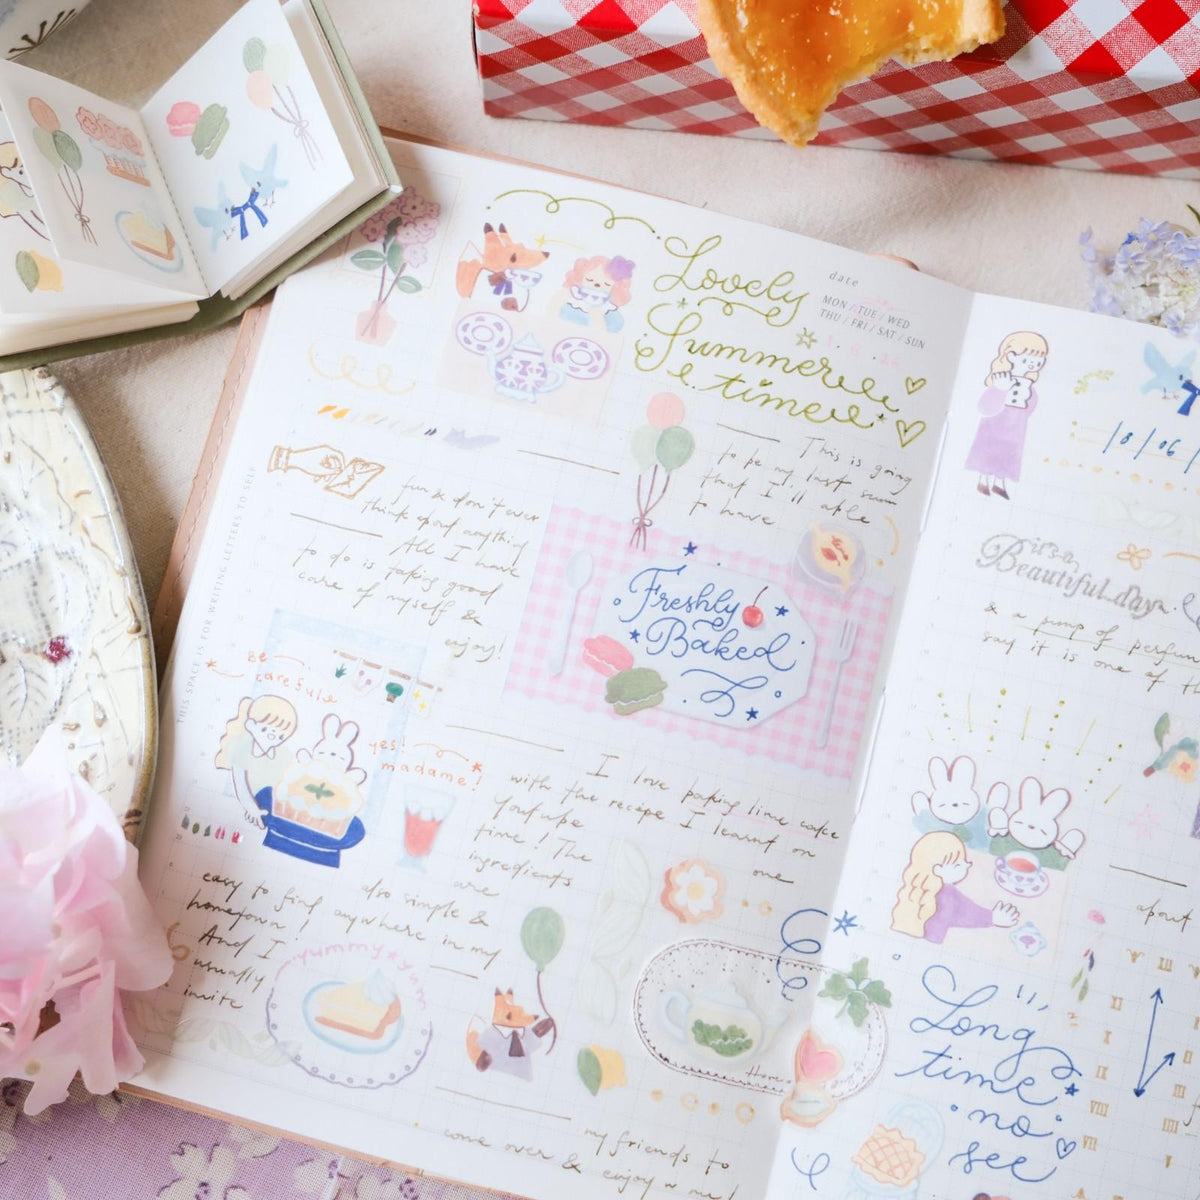 Lovely
Summer
time
date
MON / TUE / WED
THU / FRI / SAT / SUN
This is going
to be my last sum
that I'll able
to have
fun & don't ever
think about anything
to do is taking good
All I have
care of myself &
enjoy!
THIS SPACE IS FOR WRITING LETTERS TO SELF
Freshly
Baked
Be
careful
yes!
madame!
I love baking lime cake
with the recipe I learnt on
Youtube one
time! The
ingredients
are
also simple &
easy to find anywhere in my
hometown
And I
usually
invite
yummy yum
my friends to
come over & enjoy w me!
Here
18/06/
it's a
Beautiful day
& a pump of perfum
say it is one of
about
Long
time
no
see
XI
III
XI
II
I
IX
VIII
VII
VI
V